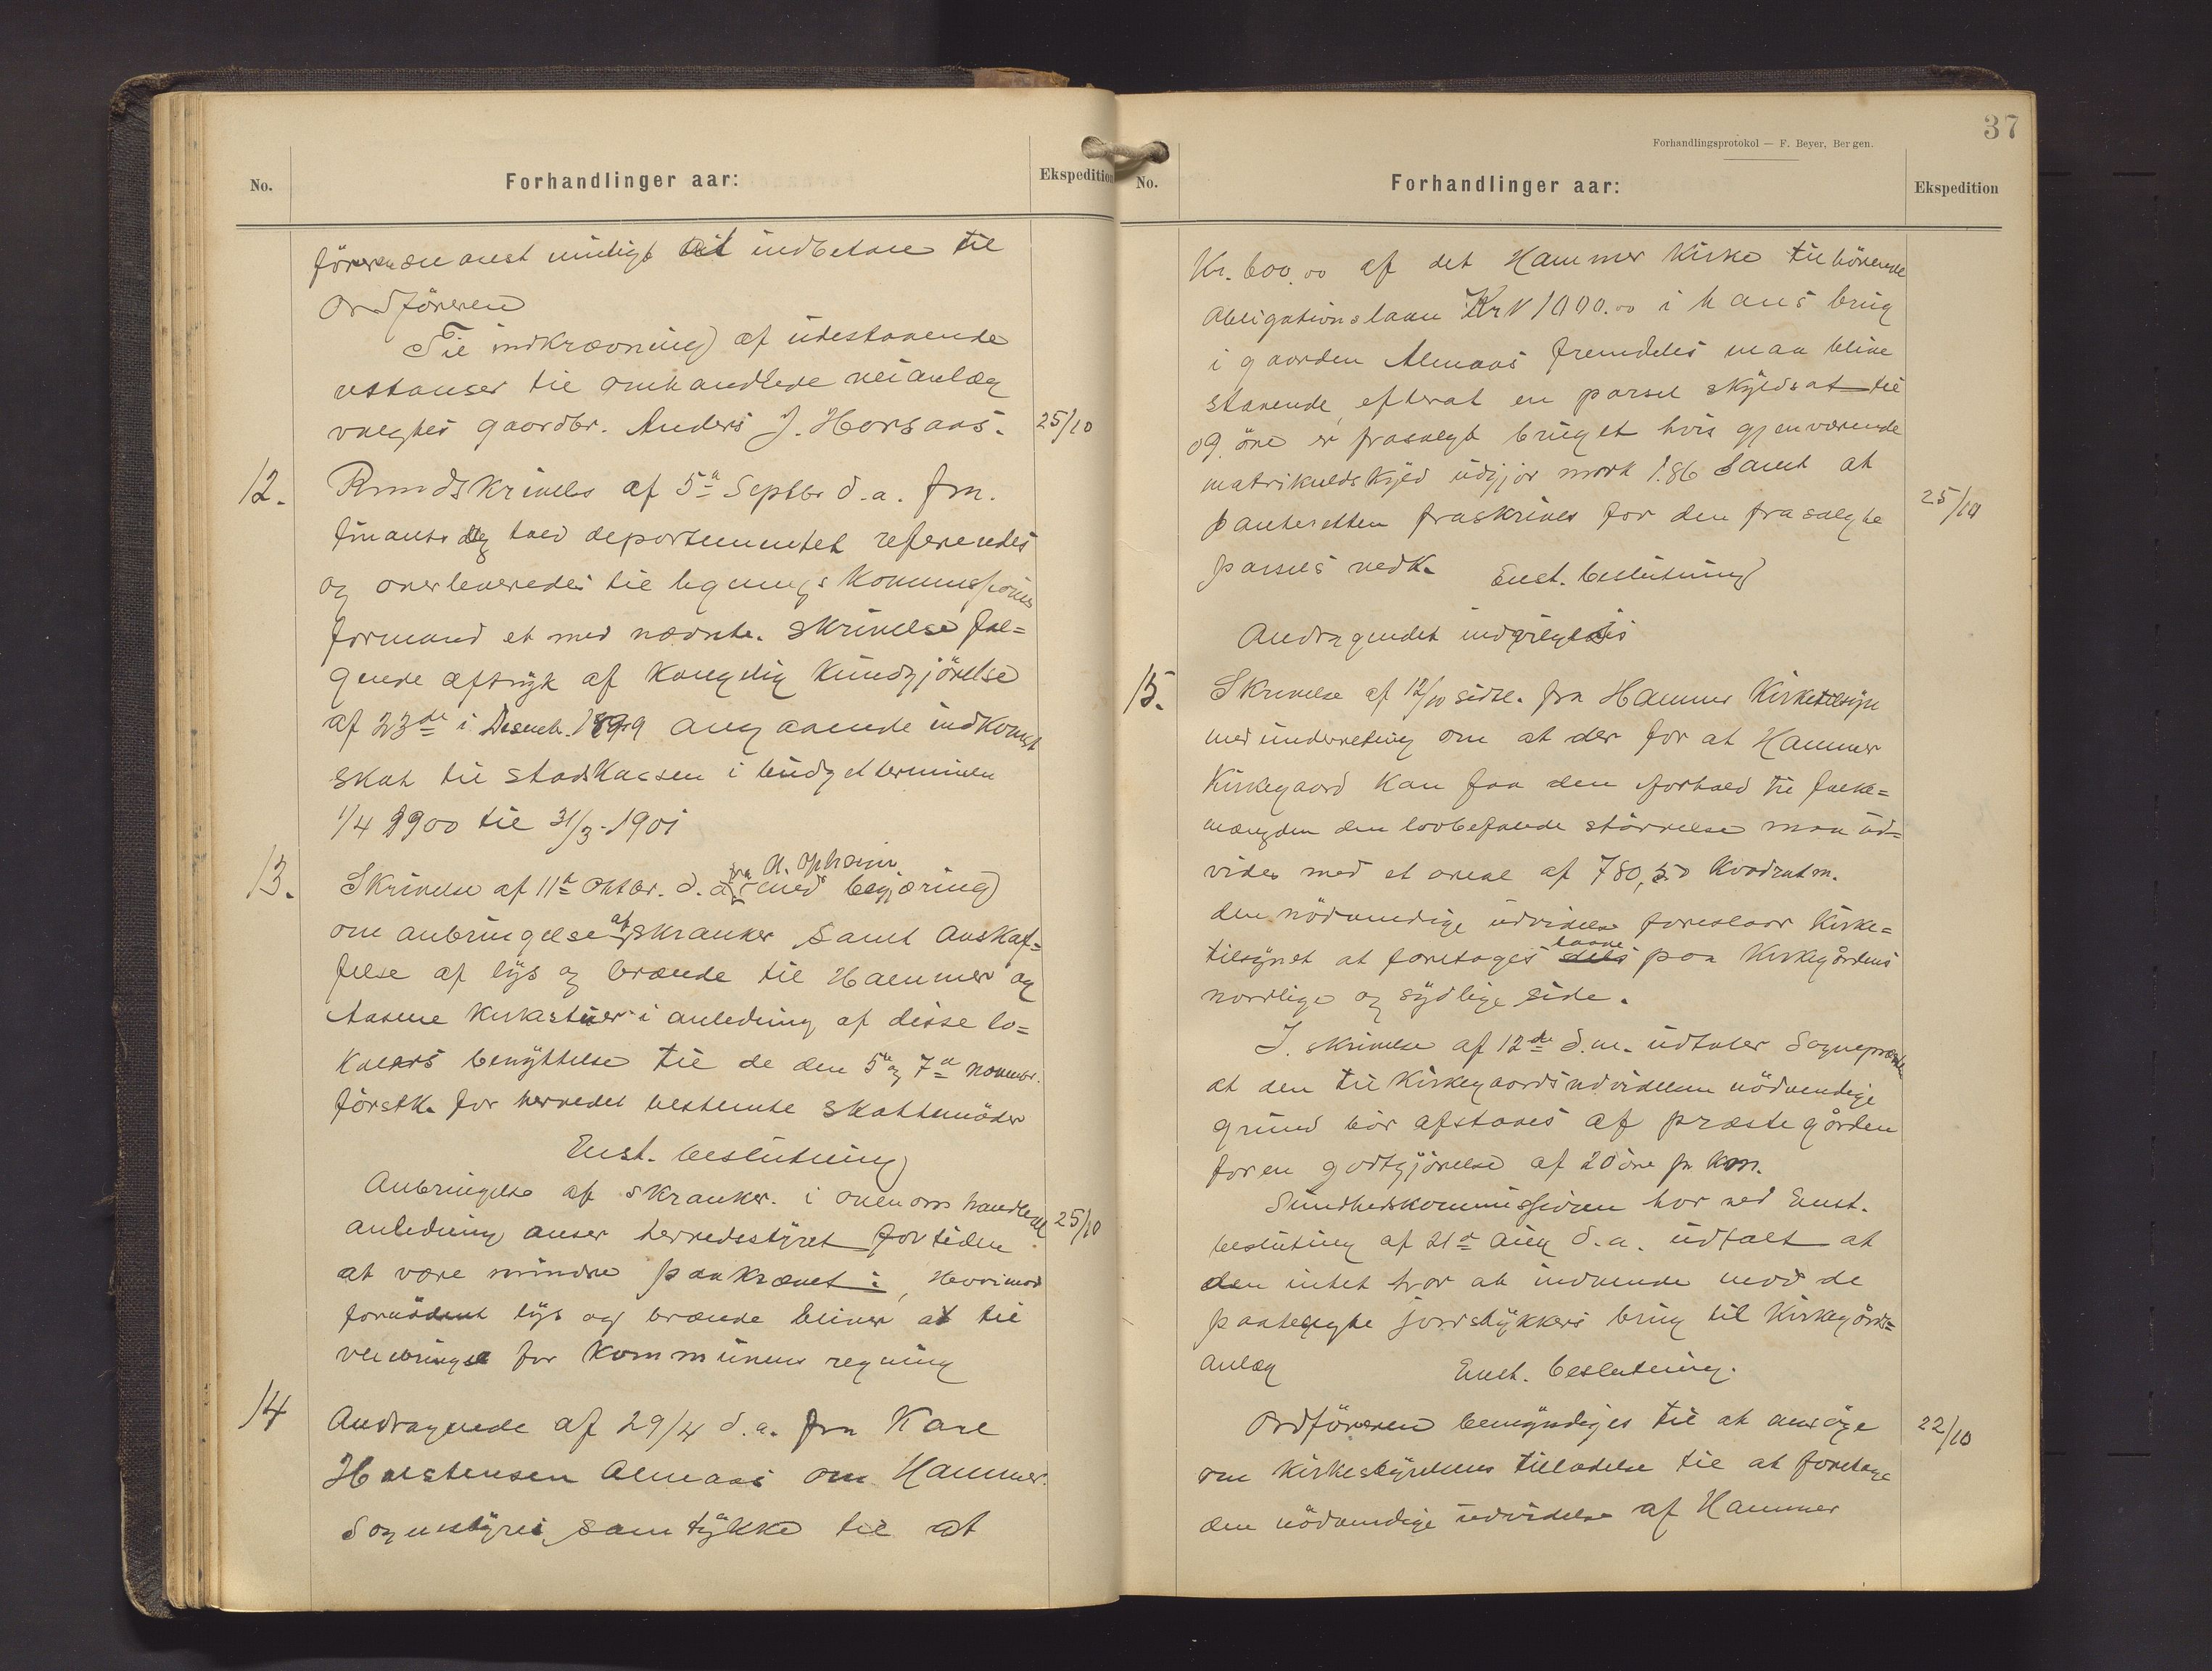 No.
Forhandlinger aar:
Ekspedition
föreren snarest muligt at indbetale til
Ordföreren
Til indkrævning af udestaaende
restanser til omhandlede veianlæg
valgtes gaardbr. Anders J. Horsaas.
25/10
12.
Rundskrivelse af 5te Septbr d.a. fra
finants og told departementet refereredes
og overleveredes til lignings kommissionens
formand et med nævnte skrivelse föl=
gende aftryk af kongelig kundgjörelse
af 23de i Desemb. 1899 angaaende indkomst
skat til stadskassen i budgetterminen
1/4 1900 til 31/3-1901
13.
fra A. Opheim
Skrivelse af 11te Oktbr. d.a. med begjæring
om anbringelse af skranker samt anskaf=
felse af lys og brænde til Hammer og
Aasene kirkestuer i anledning af disse lo=
kalers benyttelse til de den 5te og 7de novembr.
förstk. for herredet bestemte skattemöder
Enst. beslutning
Anbringelse af skranker i ovenomhandlede
anledning anser herredsstyret for tiden
at være mindre paakrævet, hvorimod
fornödent lys og brænde bliver at til
veiebringe for kommunens regning
25/10
14
Andragende af 29/4 d.a. fra Karl
Halstensen Almaas om Hammer
Sognestyres samtykke til at
37
Forhandlingsprotokol — F. Beyer, Bergen.
No.
Forhandlinger aar:
Ekspedition
Kr. 600.00 af det Hammer Kirke tilhörende
Obligationslaan Kr 1000.00 i hans brug
i gaarden Almaas fremdeles maa blive
staaende efterat en parsel skyldsat til
09 öre er frasolgt bruget hvis gjenværende
matrikulskyld udgjör mark 1.86 samt at
panteretten fraskrives for den frasolgte
parsels vedk.
Enst. beslutning
25/10
Andragendet indvilgedes
15.
Skrivelse af 12/10 sidstl. fra Hammer Kirketilsyn
med underretning om at der for at Hammer
Kirkegaard kan faa den i forhold til folke=
mængden den lovbefalede störrelse maa ud=
vides med et areal af 780,50 kvadratm.
den nödvendige udvidelse foreslaar kirke=
tilsynet at foretages dels paa Kirkegårdens
nordlige og sydlige side.
I skrivelse af 12te d.m. udtaler Sognepræsten
at den til kirkegaardsudvidelsen nödvendige
grund bör afstaaes af præstegården
for en godtgjörelse af 20 öre pr. kvm.
Sundhedskommissionen har ved Enst.
beslutning af 21de Aug d.a. udtalt at
den intet har at indvende mod de
paategnte jordstykkers brug til Kirkegårds=
anlæg
Enst. beslutning.
Ordföreren bemyndiges til at ansöge
om Kirkestyrelsens tilladelse til at foretage
den nödvendige udvidelse af Hammer
22/10